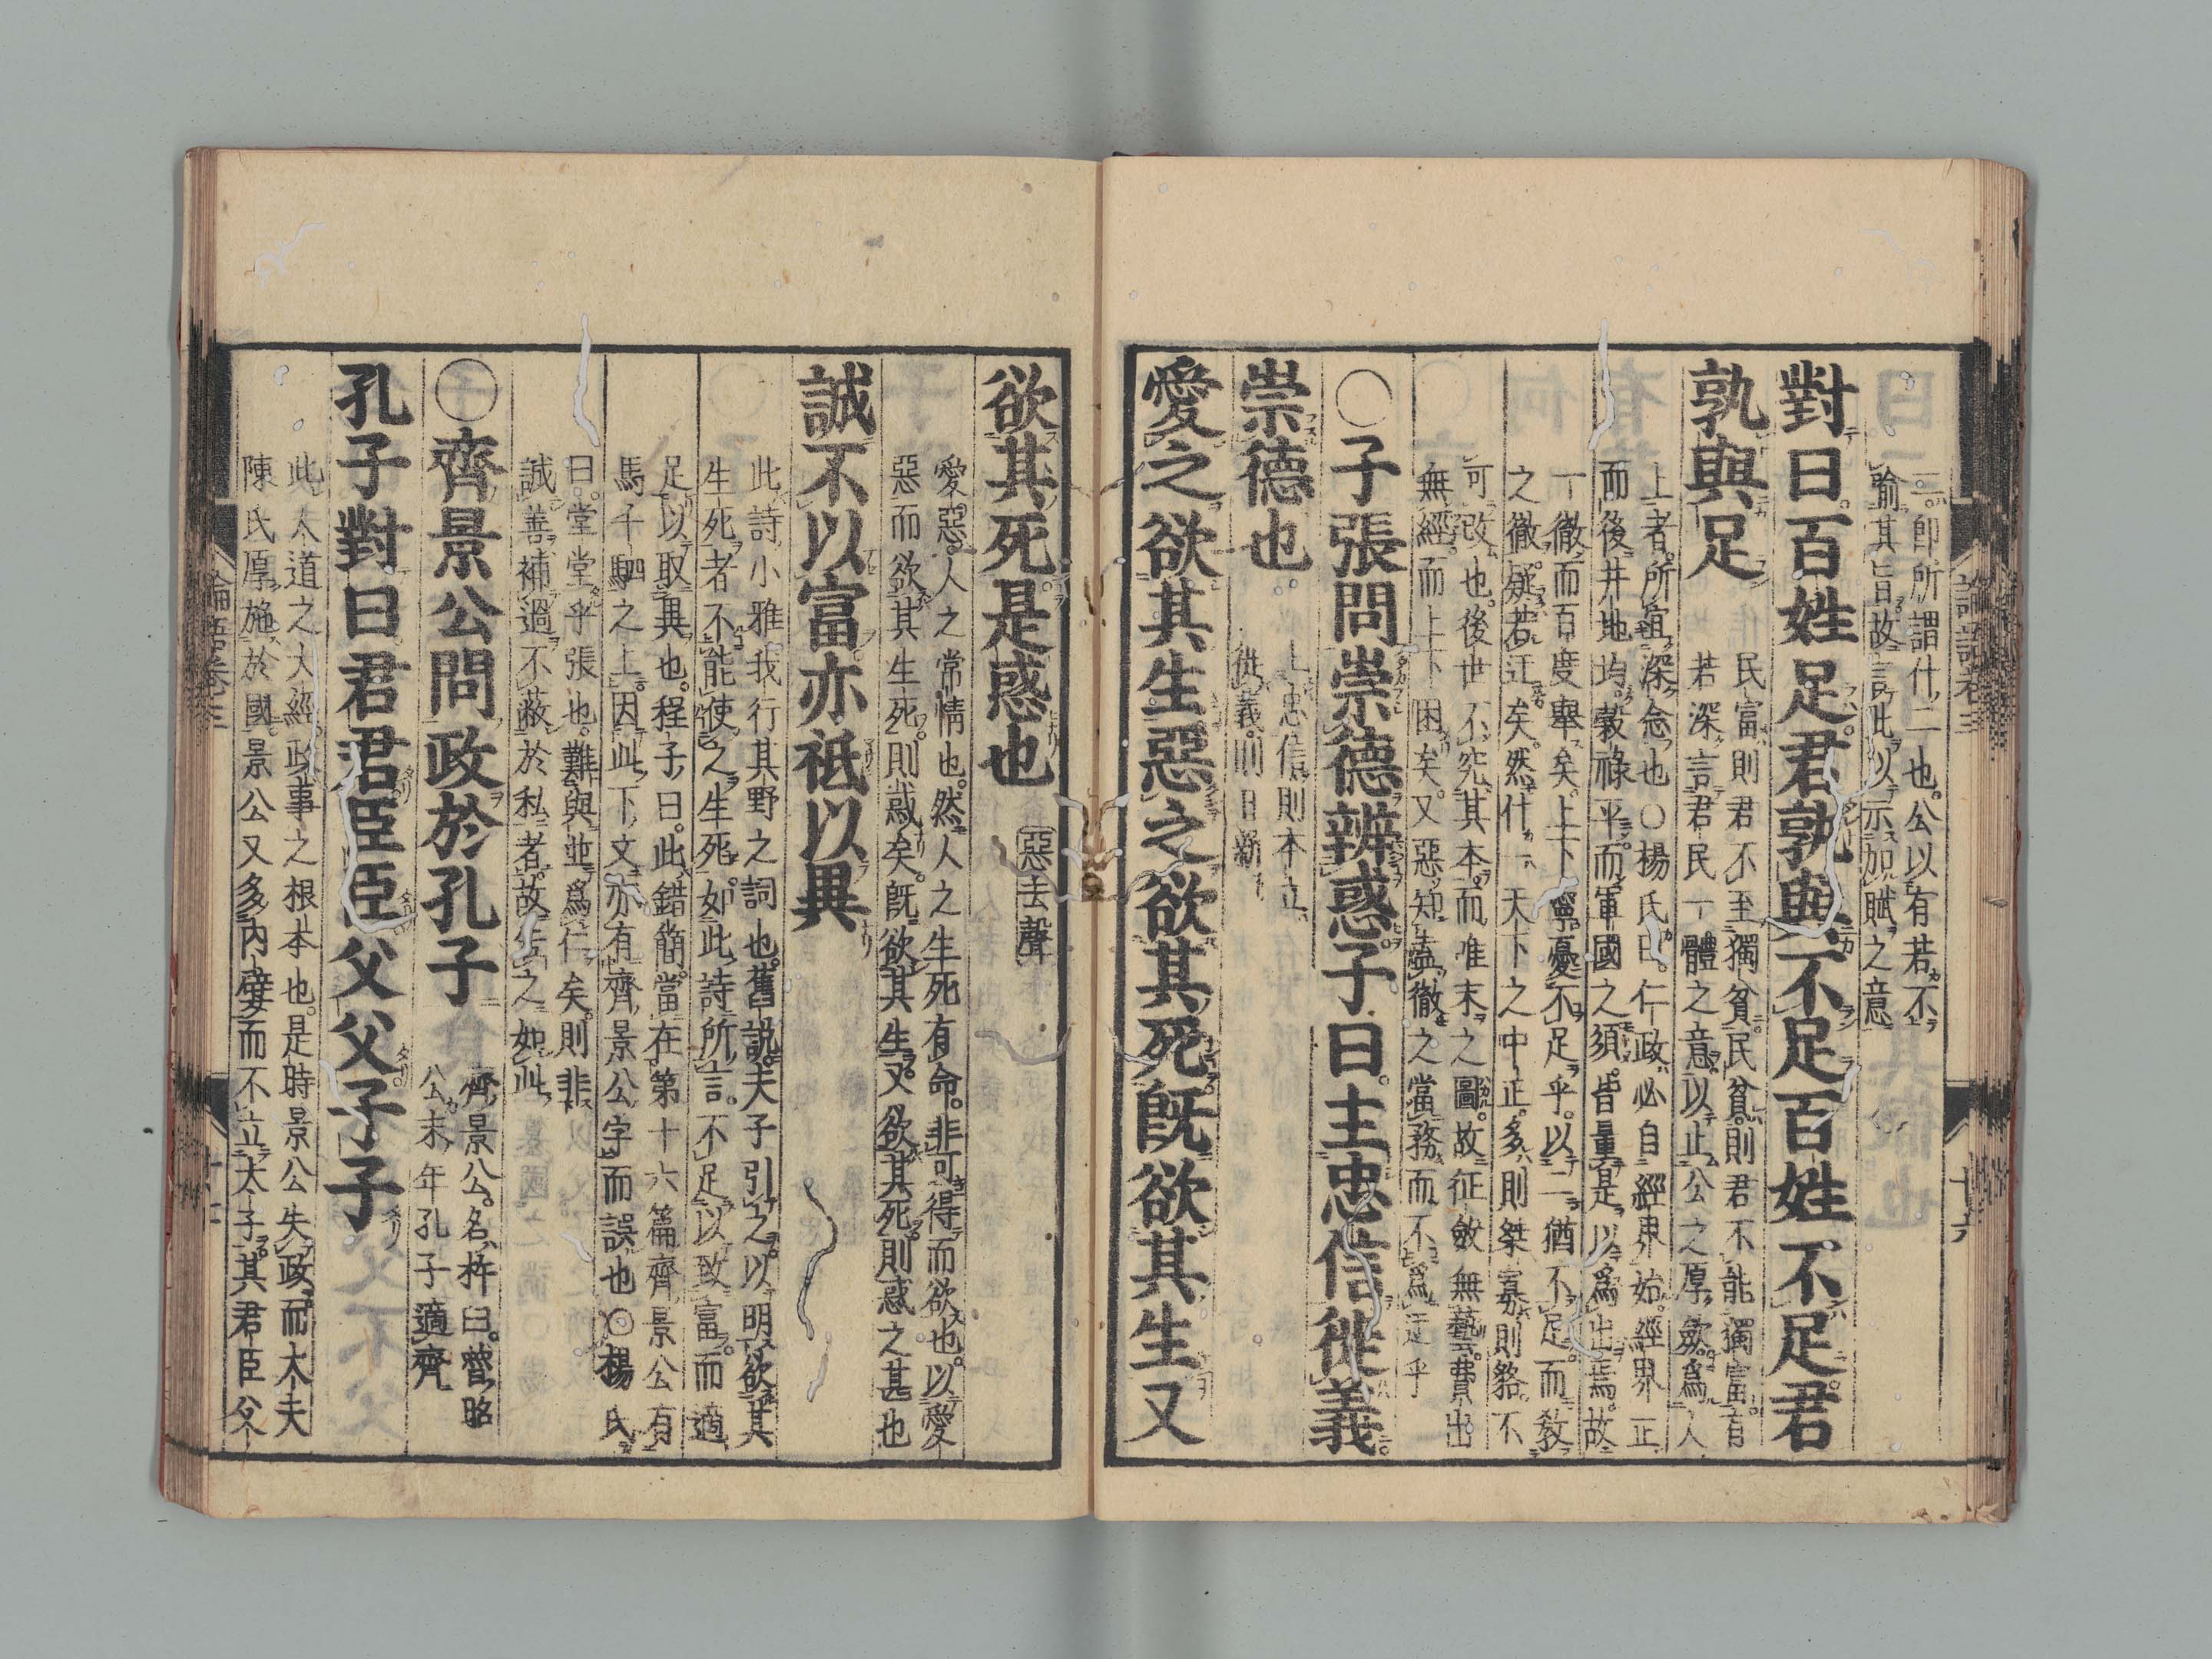 二即所謂什二也公以有若不
喻其旨故言此以示加賦之意
對曰百姓足君孰與不足百姓不足君
孰與足
民富則君不至獨貧民貧則君不能獨富有
若深言君民一體之意以止公之厚斂爲人
上者所宜深念也○楊氏曰仁政必自經界始經界正
而後井地均穀祿平而軍國之須皆量是以爲出焉故
一徹而百度舉矣上下寧憂不足乎以二猶不足而教
之徹疑若迂矣然什一天下之中正多則桀寡則貉不
可改也後世不究其本而唯末之圖故征斂無藝費出
無經而上下困矣又惡知盍徹之當務而不爲迂乎
○子張問崇德辨惑子曰主忠信徙義
崇德也
主忠信則本立
徙義則日新
愛之欲其生惡之欲其死既欲其生又
論語卷三
十六
欲其死是惑也
惡去聲
愛惡人之常情也然人之生死有命非可得而欲也以愛
惡而欲其生死則惑矣既欲其生又欲其死則惑之甚也
誠不以富亦祗以異
此詩小雅我行其野之詞也舊說夫子引之以明欲其
生死者不能使之生死如此詩所言不足以致富而適
足以取異也程子曰此錯簡當在第十六篇齊景公有
馬千駟之上因此下文亦有齊景公字而誤也○楊氏
曰堂堂乎張也難與並爲仁矣則非
誠善補過不蔽於私者故告之如此
○齊景公問政於孔子
齊景公名杵臼魯昭
公末年孔子適齊
孔子對曰君君臣臣父父子子
此人道之大經政事之根本也是時景公失政而大夫
陳氏厚施於國景公又多內嬖而不立太子其君臣父
論語卷三